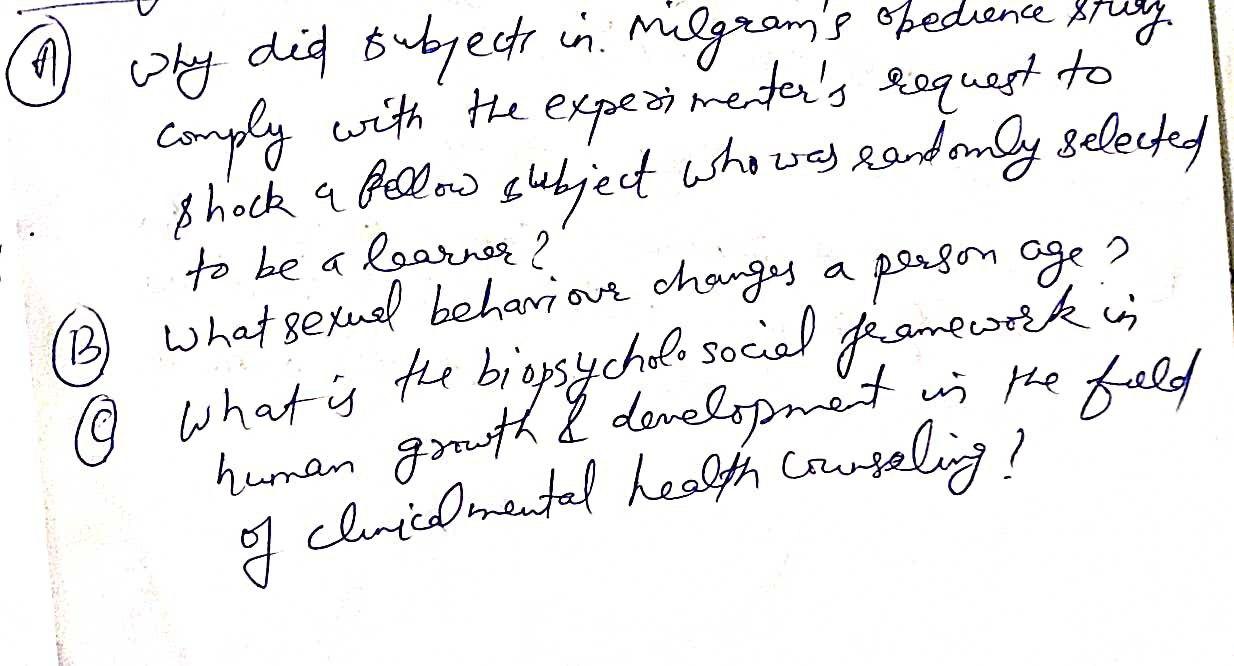 (A) Why did subjects in Milgram's obedience study
comply with the experimenter's request to
shock a fellow subject who was randomly selected
to be a learner?
(B) What sexual behaviour changes a person age?
(C) What is the biopsycholosocial framework in
human growth & development in the field
of clinical mental health counseling?